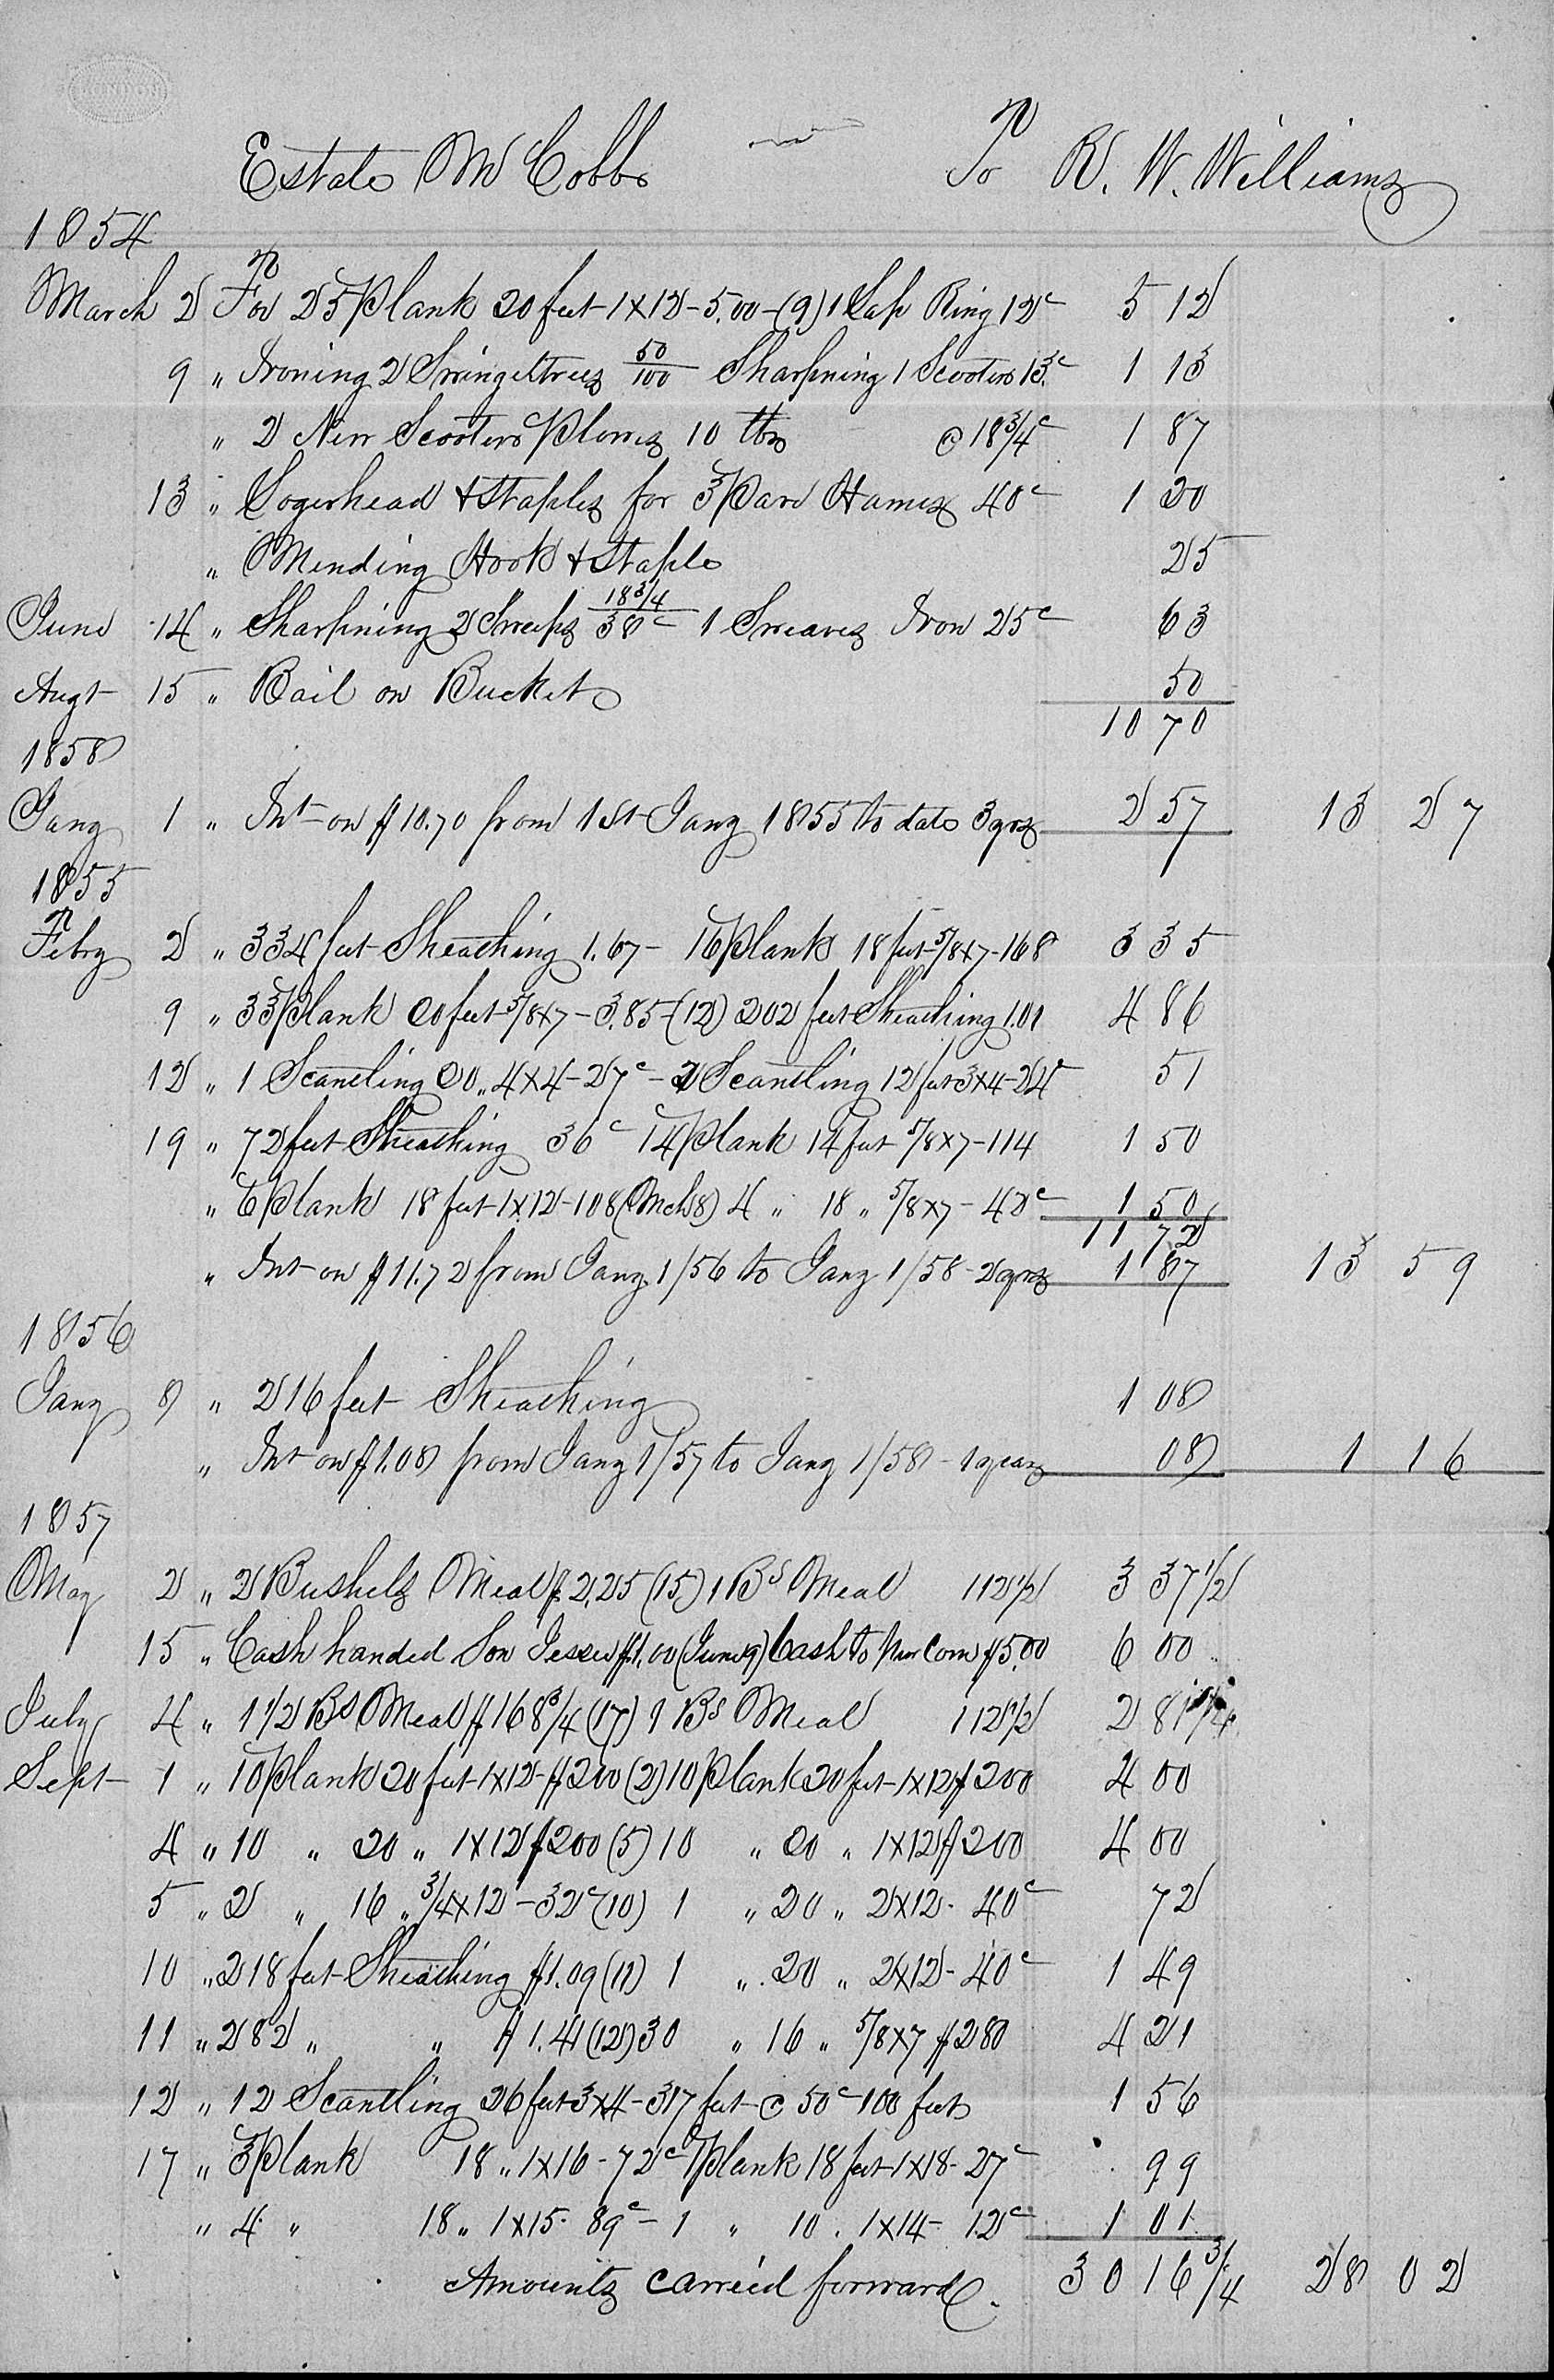 Estate M Cobbs To R. W. Williams
1854
March 2 For 25 Plank 20 feet 1x12 - 5.00 - (9) 1 Lap Ring 12c 5 12
9 " Ironing 2 Swingletrees 50/100 Sharpning 1 Scooters 13c 1 13
" 2 New Scooters Plows 10 lbs @ 18 3/4c 1 87
13 " Logerhead & Staples for 3 Pare Hames 40c 1 20
" Mending Hook & Staple 25
June 14 " Sharpining 2 Sweeps 18 3/4 / 38c 1 Sweaves Iron 25c 63
Augt 15 " Bail on Bucket 50
10 70
1858
Jany 1 " Int on $10.70 from 1st Jany 1855 to date 3 yrs 2 57 13 27
1855
Febry 2 " 334 feet Sheathing 1.67 - 16 Plank 18 feet 5/8x7 - 168 3 35
9 " 33 Plank 20 feet 5/8x7 - 3.85 - (12) 202 feet Sheathing 1.01 4 86
12 " 1 Scantling 20 " 4x4 - 27c - 2 Scantling 12 feet 3x4 - 24c 51
19 " 72 feet Sheathing 36c 14 Plank 14 feet 5/8x7 - 114 1 50
" 6 Plank 18 feet 1x12 - 108 (Mch 8) 4 " 18 " 5/8x7 - 42c 1 50
11 72
" Int on $11.72 from Jany 1/56 to Jany 1/58 - 2 yrs 1 87 13 59
1856
Jany 8 " 216 feet Sheathing 1 08
" Int on $1.08 from Jany 1/57 to Jany 1/58 - 1 year 08 1 16
1857
May 2 " 2 Bushels Meal $2,25 (15) 1 Bs Meal 112 1/2 3 37 1/2
15 " Cash handed Son Jesse $1.00 (June 9) Cash to Pur Corn $5.00 6 00
July 4 " 1 1/2 Bs Meal $168 3/4 (17) 1 Bs Meal 112 1/2 2 81 1/4
Sept 1 " 10 Plank 20 feet 1x12 - $200 (2) 10 Plank 20 feet 1x12 $200 4 00
4 " 10 " 20 " 1x12 $200 (5) 10 " 20 " 1x12 $200 4 00
5 " 2 " 16 " 3/4x12 - 32c (10) 1 " 20 " 2x12 - 40c 72
10 " 218 feet Sheathing $1.09 (11) 1 " 20 " 2x12 - 40c 1 49
11 " 282 " " $1.41 (12) 30 " 16 " 5/8x7 $280 4 21
12 " 12 Scantling 26 feet 3x4 - 317 feet @ 50c 100 feet 1 56
17 " 3 Plank 18 " 1x16 - 72c 1 Plank 18 feet 1x18 - 27c 99
" 4 " 18 " 1x15 - 89c - 1 " 10 " 1x14 - 12c 1 01
Amounts carried forward. 30 16 3/4 28 02